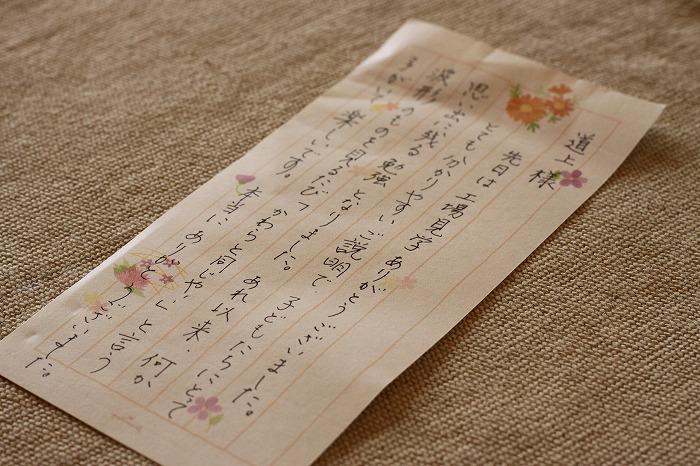 道上様
先日は 工場見学 ありがとうございました。
とても分かりやすいご説明で、子どもたちにとって
思い出に残る 勉強となりました。 あれ以来、何か
波形のものを見るたび「かわらと同じや」と言う
子がいて 楽しいです。
本当に ありがとうございました。